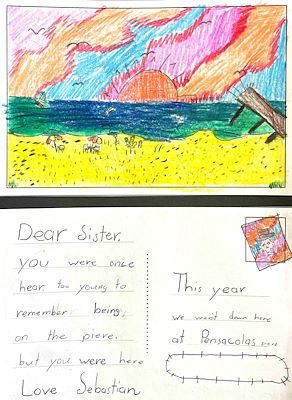 Dear Sister,
you were once
hear too young to
remember being
on the piere.
but you were here
Love Sebastian
This year
we went down here
at Pensacolas piere